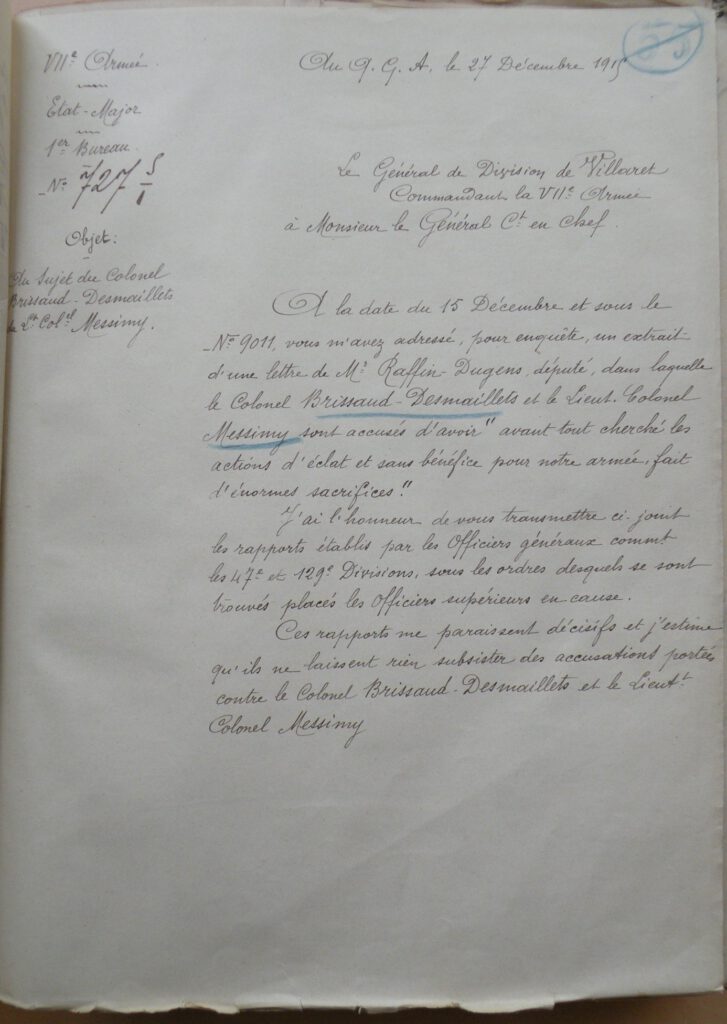 VIIe Armée
Etat-Major
1er Bureau
No 727 S/1
Objet:
Au Sujet du Colonel
Brissaud-Desmaillets
Lt Colel Messimy.
53
Au Q. G. A, le 27 Décembre 1915
Le Général de Division de Villaret
Commandant la VIIe Armée
à Monsieur le Général Ct en Chef.
A la date du 15 Décembre et sous le
No 9011, vous m'avez adressé, pour enquête, un extrait
d'une lettre de Mr Raffin-Dugens, député, dans laquelle
le Colonel Brissaud-Desmaillets et le Lieut. Colonel
Messimy sont accusés d'avoir "avant tout cherché les
actions d'éclat et sans bénéfice pour notre armée, fait
d'énormes sacrifices."
J'ai l'honneur de vous transmettre ci-joint
les rapports établis par les Officiers généraux commt
les 47e et 129e Divisions, sous les ordres desquels se sont
trouvés placés les Officiers supérieurs en cause.
Ces rapports me paraissent décisifs et j'estime
qu'ils ne laissent rien subsister des accusations portées
contre le Colonel Brissaud-Desmaillets et le Lieutt
Colonel Messimy